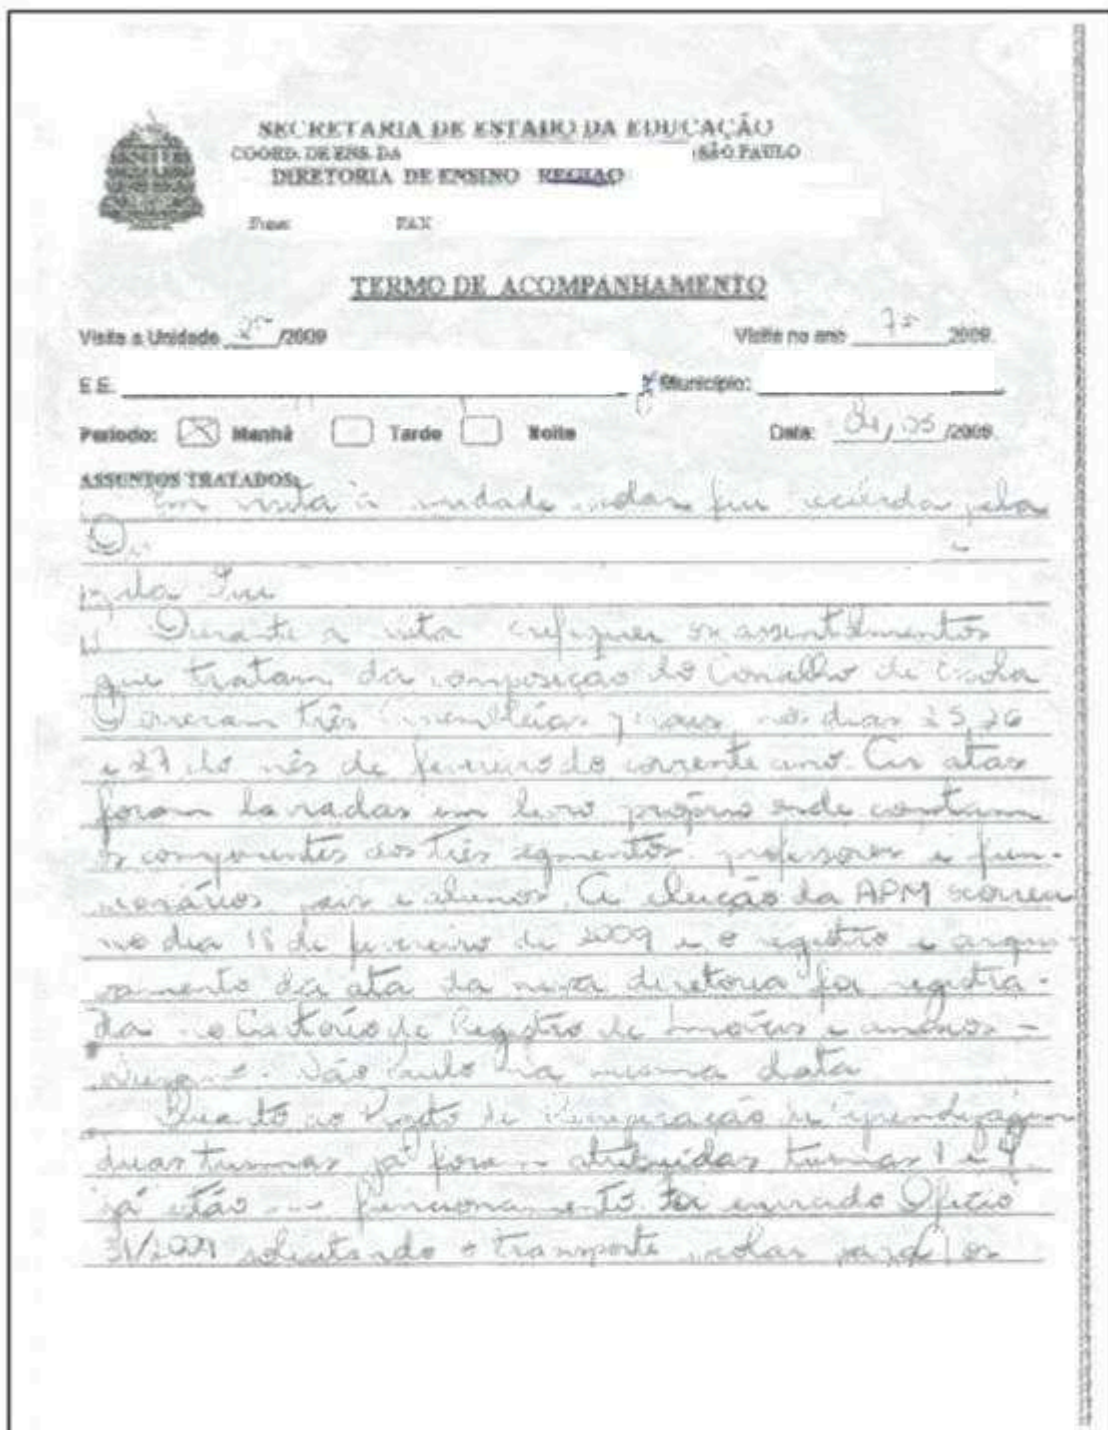 SECRETARIA DE ESTADO DA EDUCAÇÃO
COORD. DE ENS. DA SÃO PAULO
DIRETORIA DE ENSINO REGIÃO
Fone: FAX
TERMO DE ACOMPANHAMENTO
Visita a Unidade /2009 Visita no ano 2009.
E.E. Município:
Período: Manhã Tarde Noite Data: /05 /2009.
ASSUNTOS TRATADOS:
Em visita à unidade escolar fui recebida pela
pela
Durante a visita os assentamentos
que tratam da composição do Conselho de Escola
Ocorreram três Assembleias gerais, nos dias 25, 26
e 27 do mês de fevereiro do corrente ano. As atas
foram lavradas em livro próprio onde constam
os componentes dos três segmentos: professores e fun-
cionários, pais e alunos. A eleição da APM ocorreu
no dia 18 de fevereiro de 2009 e o registro e arqui-
vamento da ata da nova diretoria foi registra-
da no Cartório de Registro de Imóveis e anexos -
São Paulo na mesma data
Quanto ao Projeto de Recuperação de Aprendizagem
duas turmas já foram atribuídas turmas 1 e 4
já estão funcionamento foi enviado Ofício
31/2009 solicitando o transporte escolar para os